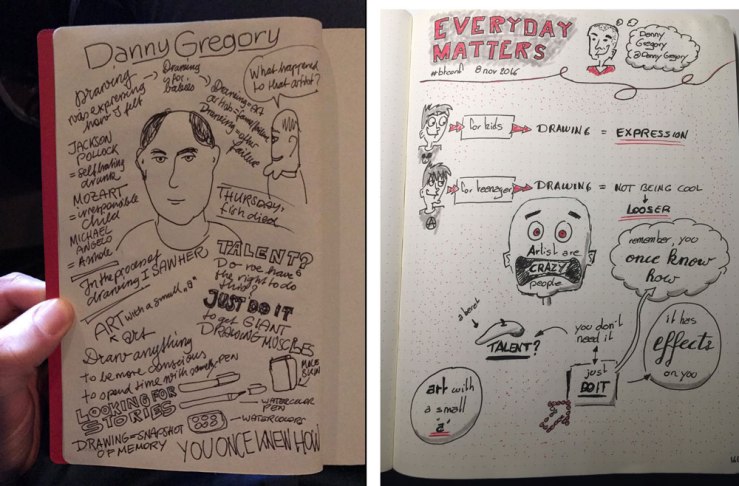 Danny Gregory
Drawing
was expressing
how I felt
Drawing
for
babies
Drawing=Art
Drawing=other
failure
What happened
to that artist?
JACKSON
POLLOCK
drunk
MOZART
= irresponsible
child
MICHAEL
ANGELO
= Asshole
THURSDAY,
fish died
In the process of
drawing I SAW HER
TALENT?
Do we have
the right to do
this?
JUST DO IT
to get GIANT
DRAWING MUSCLES
ART with a small "a"
art
Draw anything
to be more conscious
to spend time with
PEN
LOOKING FOR
STORIES
WATERCOLOR
PEN
WATERCOLORS
DRAWING=SNAPSHOT
OF MEMORY
YOU ONCE KNEW HOW
EVERYDAY
MATTERS
#btconf 8 nov 2016
Danny
Gregory
@Danny Gregory
for kids
DRAWING = EXPRESSION
for teenager
DRAWING = NOT BEING COOL
LOOSER
Artist are
CRAZY
people
remember, you
once know
how
a beret
TALENT?
you don't
need it
just
DO IT
it has
effects
on you
art with
a small
'a'